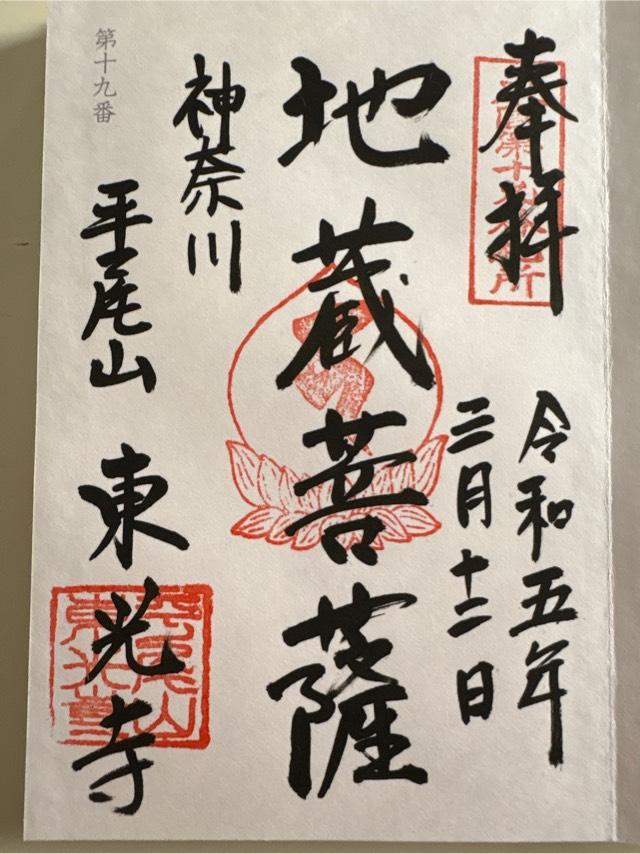 奉拝
令和五年
三月十二日
地蔵菩薩
神奈川
平尾山
東光寺
第十九番